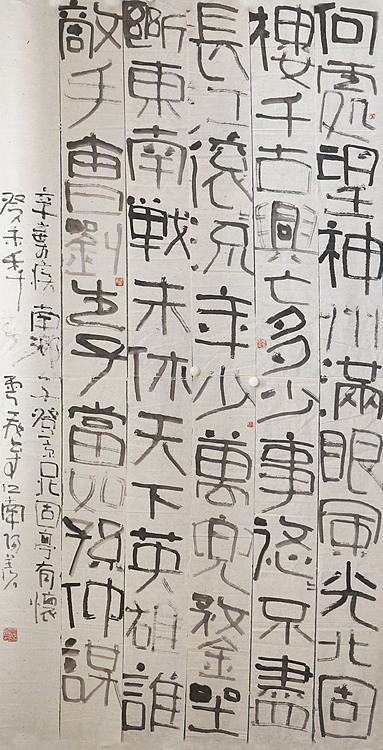 何處望神州滿眼風光北固
樓千古興亡多少事悠不盡
長江滚流年少萬兜鍪坐
断東南戦未休天下英雄誰
敵手曹劉生子當如孫仲謀
辛棄疾南鄉子登京口北固亭有懷
癸未年江南